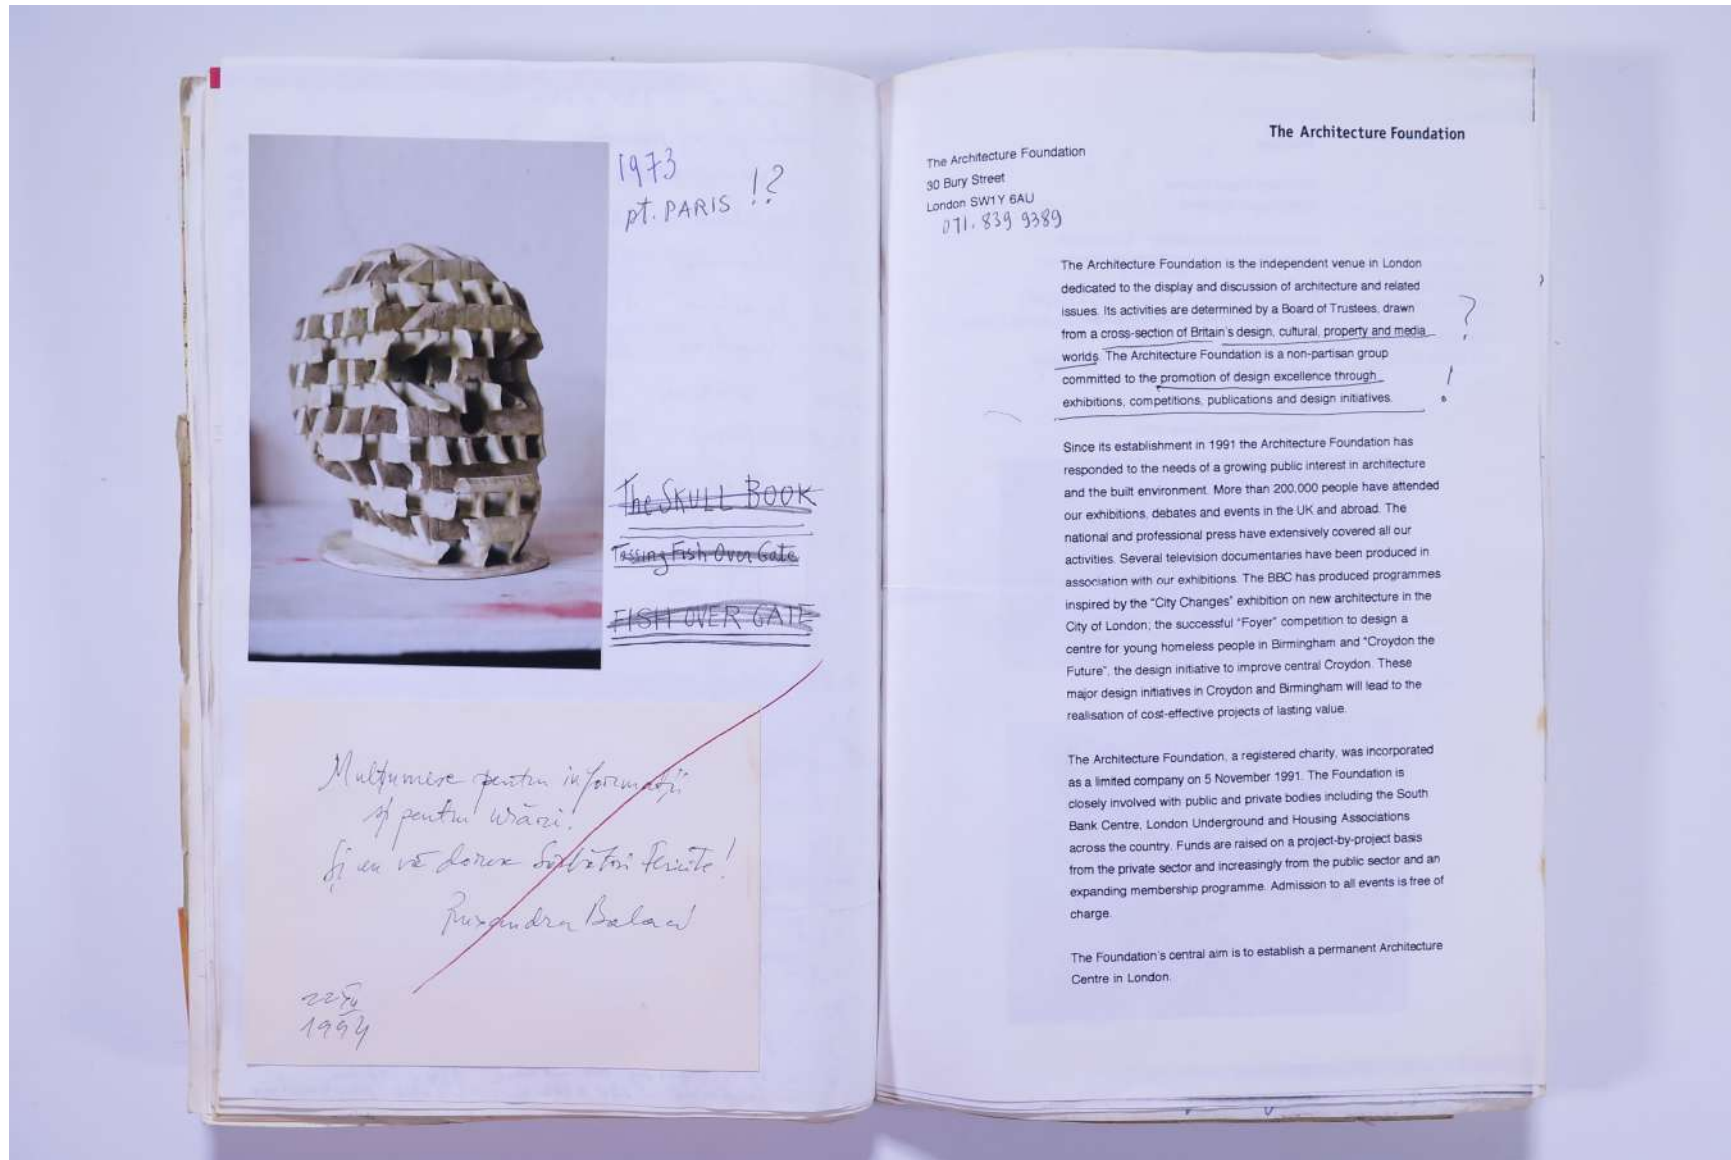 1973
pt. PARIS !?
The SKULL BOOK
Tossing Fish Over Gate
FISH OVER GATE
Mulțumesc pentru informații
și pentru urări!
Și eu vă doresc Sărbători Fericite!
Ruxandra Balaci
22 XII
1994
The Architecture Foundation
The Architecture Foundation
30 Bury Street
London SW1Y 6AU
071. 839 9389
The Architecture Foundation is the independent venue in London
dedicated to the display and discussion of architecture and related
issues. Its activities are determined by a Board of Trustees, drawn
from a cross-section of Britain's design, cultural, property and media
worlds. The Architecture Foundation is a non-partisan group
committed to the promotion of design excellence through
exhibitions, competitions, publications and design initiatives.
?
!
Since its establishment in 1991 the Architecture Foundation has
responded to the needs of a growing public interest in architecture
and the built environment. More than 200,000 people have attended
our exhibitions, debates and events in the UK and abroad. The
national and professional press have extensively covered all our
activities. Several television documentaries have been produced in
association with our exhibitions. The BBC has produced programmes
inspired by the "City Changes" exhibition on new architecture in the
City of London; the successful "Foyer" competition to design a
centre for young homeless people in Birmingham and "Croydon the
Future", the design initiative to improve central Croydon. These
major design initiatives in Croydon and Birmingham will lead to the
realisation of cost-effective projects of lasting value.
The Architecture Foundation, a registered charity, was incorporated
as a limited company on 5 November 1991. The Foundation is
closely involved with public and private bodies including the South
Bank Centre, London Underground and Housing Associations
across the country. Funds are raised on a project-by-project basis
from the private sector and increasingly from the public sector and an
expanding membership programme. Admission to all events is free of
charge.
The Foundation's central aim is to establish a permanent Architecture
Centre in London.